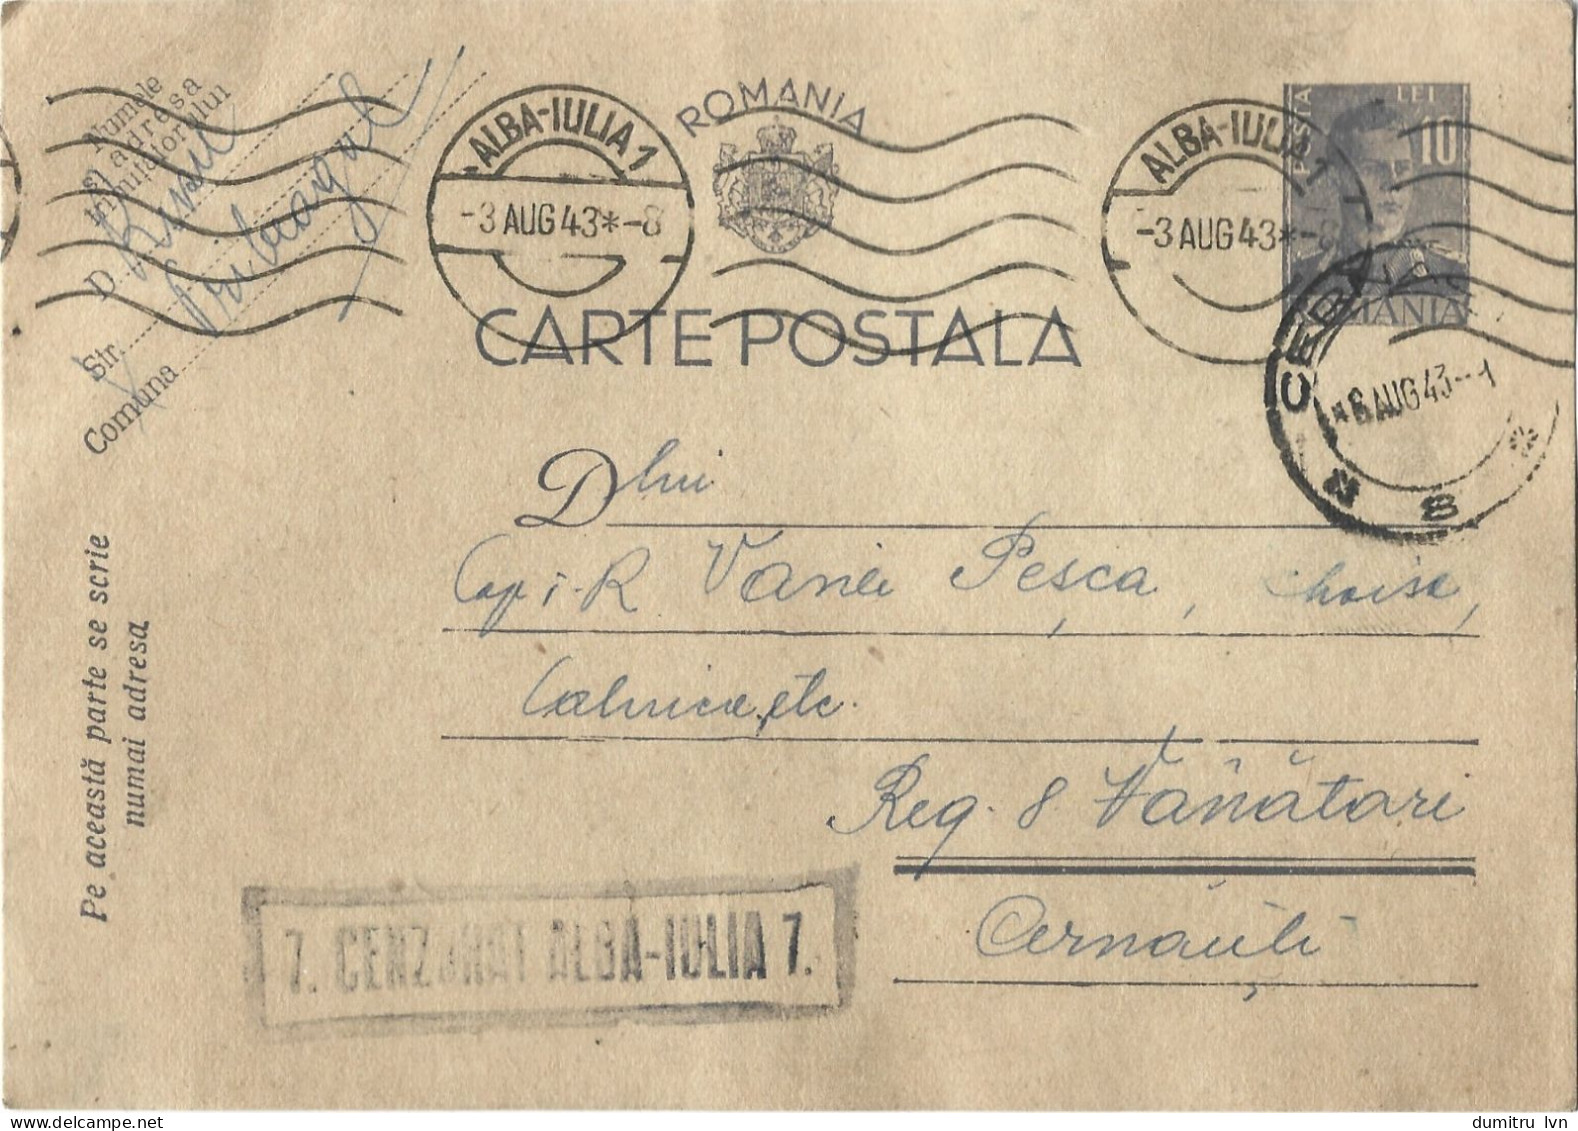 Numele
și adresa
trimițătorului
D.
Str.
Comuna
ALBA-IULIA 1
-3 AUG 43*-8
ROMANIA
CARTE POSTALA
ALBA-IULIA 1
-3 AUG 43*-8
POSTA
LEI
10
ROMANIA
AUG 43--1
Pe această parte se scrie
numai adresa
Dlui
Pesça,
etc.
Reg. 8 Vânători
Cernăuți
7. CENZURAT ALBA-IULIA 7.
dumitru lvn